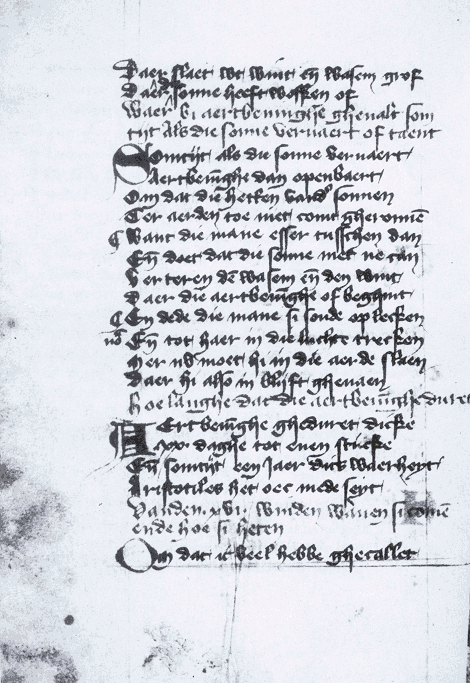 Daer slaet wt wint eñ wasem grof
daer sonne heeft wassen of
Waer bi aertbeuinghe ghevalt som
tijt Als die sonne vervaert of taent
Somtijt als die sonne vervaert
Aertbeuinghe dan openbaert
Om dat die hetten vand sonnen
Ter aerden toe niet comt gheronnē
Want die mane esser tusschen dan
Eñ doet dat die sonne niet ne can
Verteren dē wasem eñ den wint
Daer die aertbeuīghe of beghint
Eñ dede die mane si soude op lecken
Eñ tot haer in die luchte trecken
Mer nv moet hi in die aerde slaen
Daer hi also in blijft ghevaen
Hoe langhe dat die aertbeuīghe ghedured
Ertbeuīghe ghedueret dicke
xx daghe tot enen sticke
Eñ somtijt een Jaer dats waerheyt
Aristotiles het oec mede seyt
Vanden xvi winden wanen si comē
ende hoe si heten
Om dat ic veel hebbe ghecallet